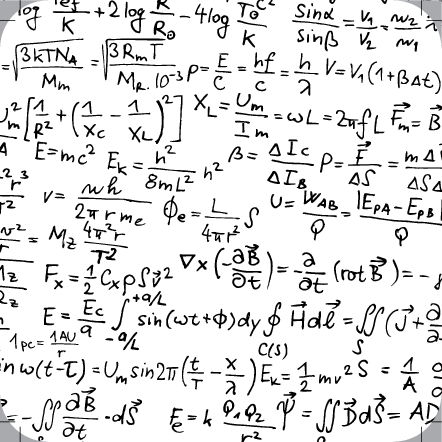 log Tef/K + 2 log R/R⊙ - 4 log T⊙/K C² sinα/sinβ = v₁/v₂ = n₂/n₁
= √(3kTNₐ/Mₘ) = √(3RₘT/Mᵣ.10⁻³) p = E/c = hf/c = h/λ V = V₁(1+βΔt)
U²ₘ[1/R² + (1/X_C - 1/X_L)²] X_L = Uₘ/Iₘ = ωL = 2πfL F⃗ₘ = B⃗
E = mc² E_K = h²/8mL² n² β = ΔI_C/ΔI_B P = F⃗/ΔS = mΔ/ΔSΔ
r³/T² v = nh/2πrmₑ Φₑ = L/4πr² S U = W_AB/Q = |E_PA - E_PB|/Q
= M_Z 4π²r/T²
F_x = ½ C_x ρSv⃗² ∇x(-∂B⃗/∂t) = -∂/∂t (rot B⃗) = -
E = E_C/a ∫₋ₐ/λ⁺ᵃ/λ sin(ωt+Φ)dy ∮_C(S) H⃗dl⃗ = ∬_S (J⃗ + ∂
1pc = 1AU/r
in ω(t-τ) = Uₘ sin2π(t/T - x/λ) E_K = ½ mv² S = 1/A
= -∬∂B⃗/∂t · dS⃗ Fₑ = k Q₁Q₂/r² Ψ⃗ = ∬D⃗dS⃗ = AD